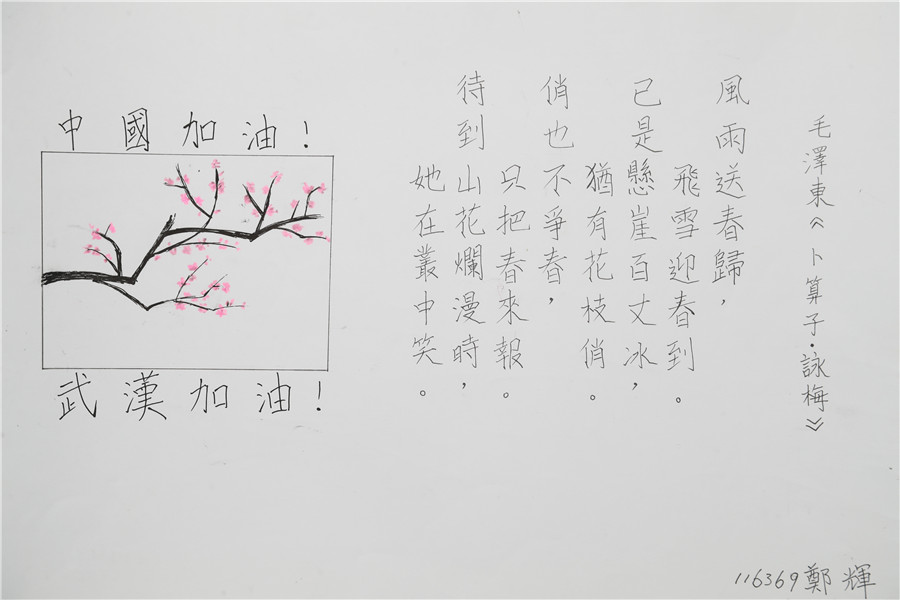 毛澤東《卜算子·詠梅》
風雨送春歸，
飛雪迎春到。
已是懸崖百丈冰，
猶有花枝俏。
俏也不爭春，
只把春來報。
待到山花爛漫時，
她在叢中笑。
中國加油！
武漢加油！
116369鄭輝